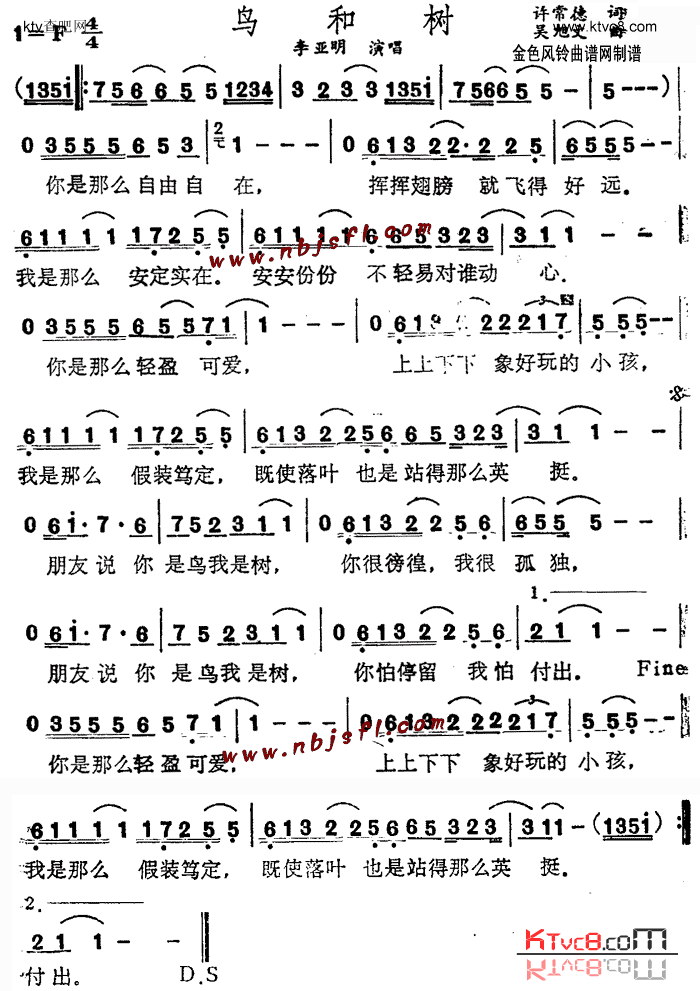 ktv查吧网
鸟 和 树
许常德 词
www.ktvc8.com
1=F 4/4
李亚明 演唱
吴旭文 曲
金色风铃曲谱网制谱
(1351 ‖: 756655 1234 | 3 2 3 3 1351 | 756655 - | 5 - - - )|
0 3555 5653 | 1 - - - | 0 613 22· 225 | 65555 - - |
你是那么自由自 在, 挥挥翅膀 就飞得 好 远.
61111 17255 | 61111 665323 | 311 - - |
我是那么 安定实在. 安安份份 不轻易对谁动 心.
www.nbjsfl.com
0 3555 565571 | 1 - - - | 0 61 222217 | 5 555 - - |
你是那么轻盈 可爱, 上上下下 象好玩的 小 孩,
61111 17255 | 61322566 65323 | 31 1 - - |
我是那么 假装笃定, 既使落叶 也是站得那么英 挺.
0 6i· 7· 6 | 752311 | 0 61322 56 | 655 5 - - |
朋友 说 你 是鸟我是树, 你很徬徨, 我很 孤 独,
1.
0 6i· 7· 6 | 752311 | 0 61322 56 | 21 1 - - |
朋友 说 你 是鸟我是树, 你怕停留 我怕 付出. Fine
0 3555 56571 | 1 - - - | 0 613 2222217 | 5 555 - - |
你是那么轻盈可爱, 上上下下 象好玩的 小孩,
www.nbjsfl.com
61111 17255 | 61322566 65323 | 311 - (1351 :‖
我是那么 假装笃定, 既使落叶 也是站得那么英 挺.
2.
21 1 - - ‖
付出. D.S
KTvc8.com